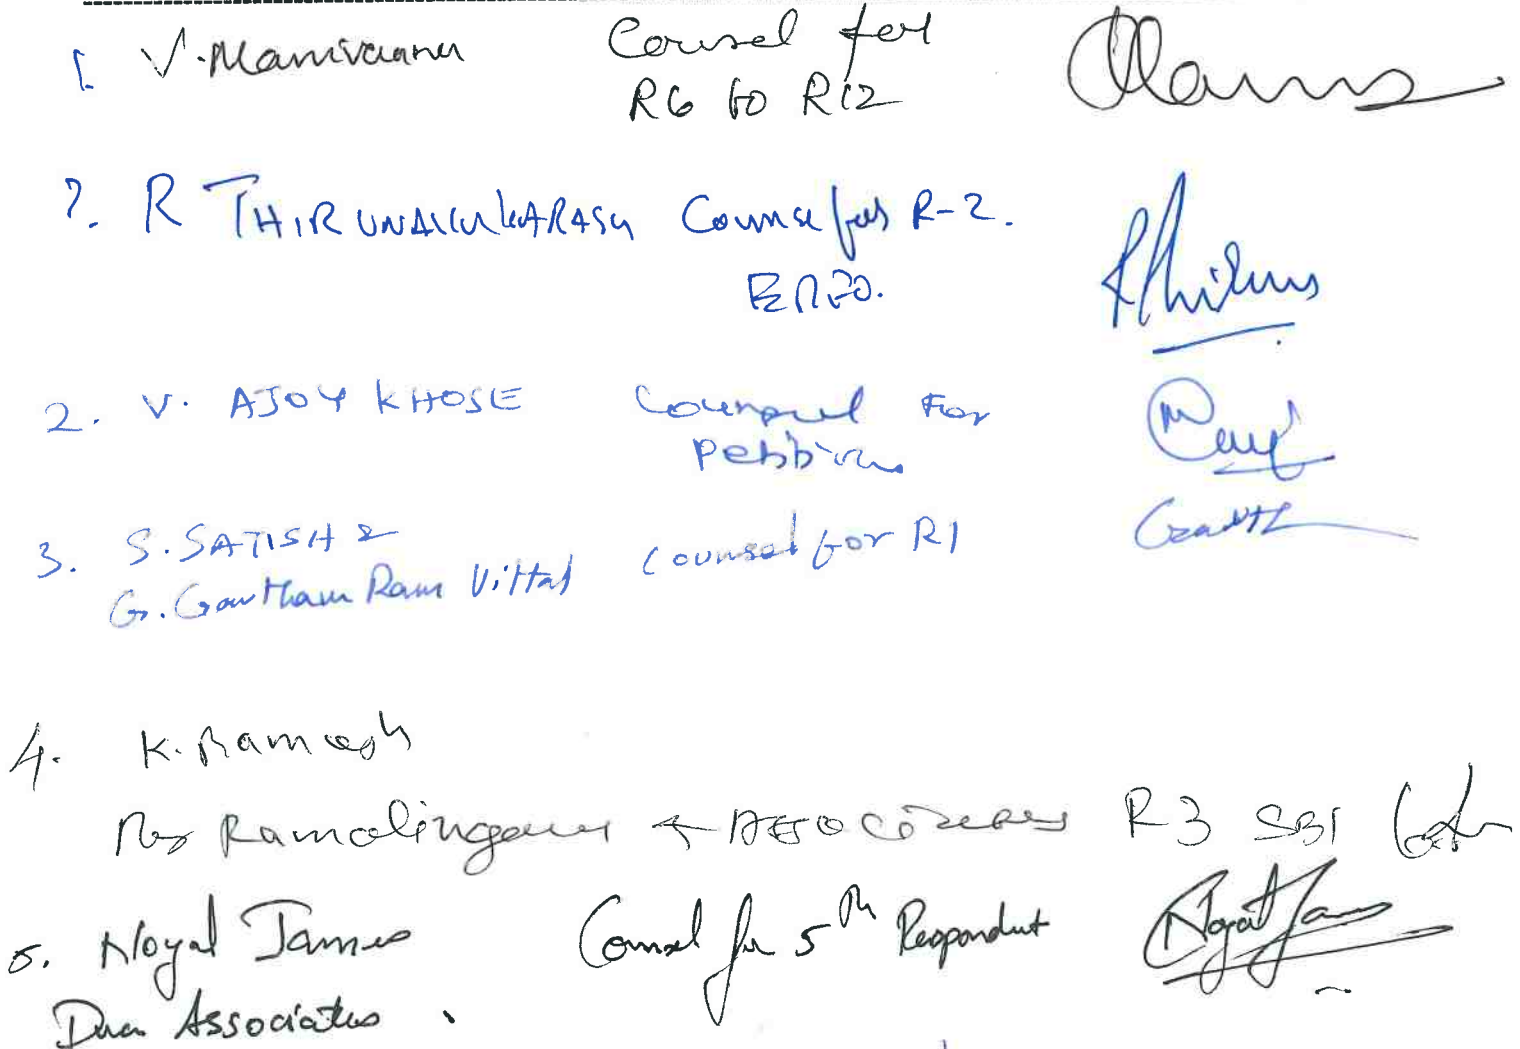 1. V. Manivannan Counsel for
R6 to R12
?. R THIRUNAVUKKARASU Counsel for R-2.
2. V. AJOY KHOSE Counsel For
Petitioner
3. S. SATISH &
G. Gowtham Ram Vittal Counsel for R1
4. K. Ramesh
Ramalingam & Associates R3 SBI
5. Noyal James Counsel for 5th Respondent
Associates.